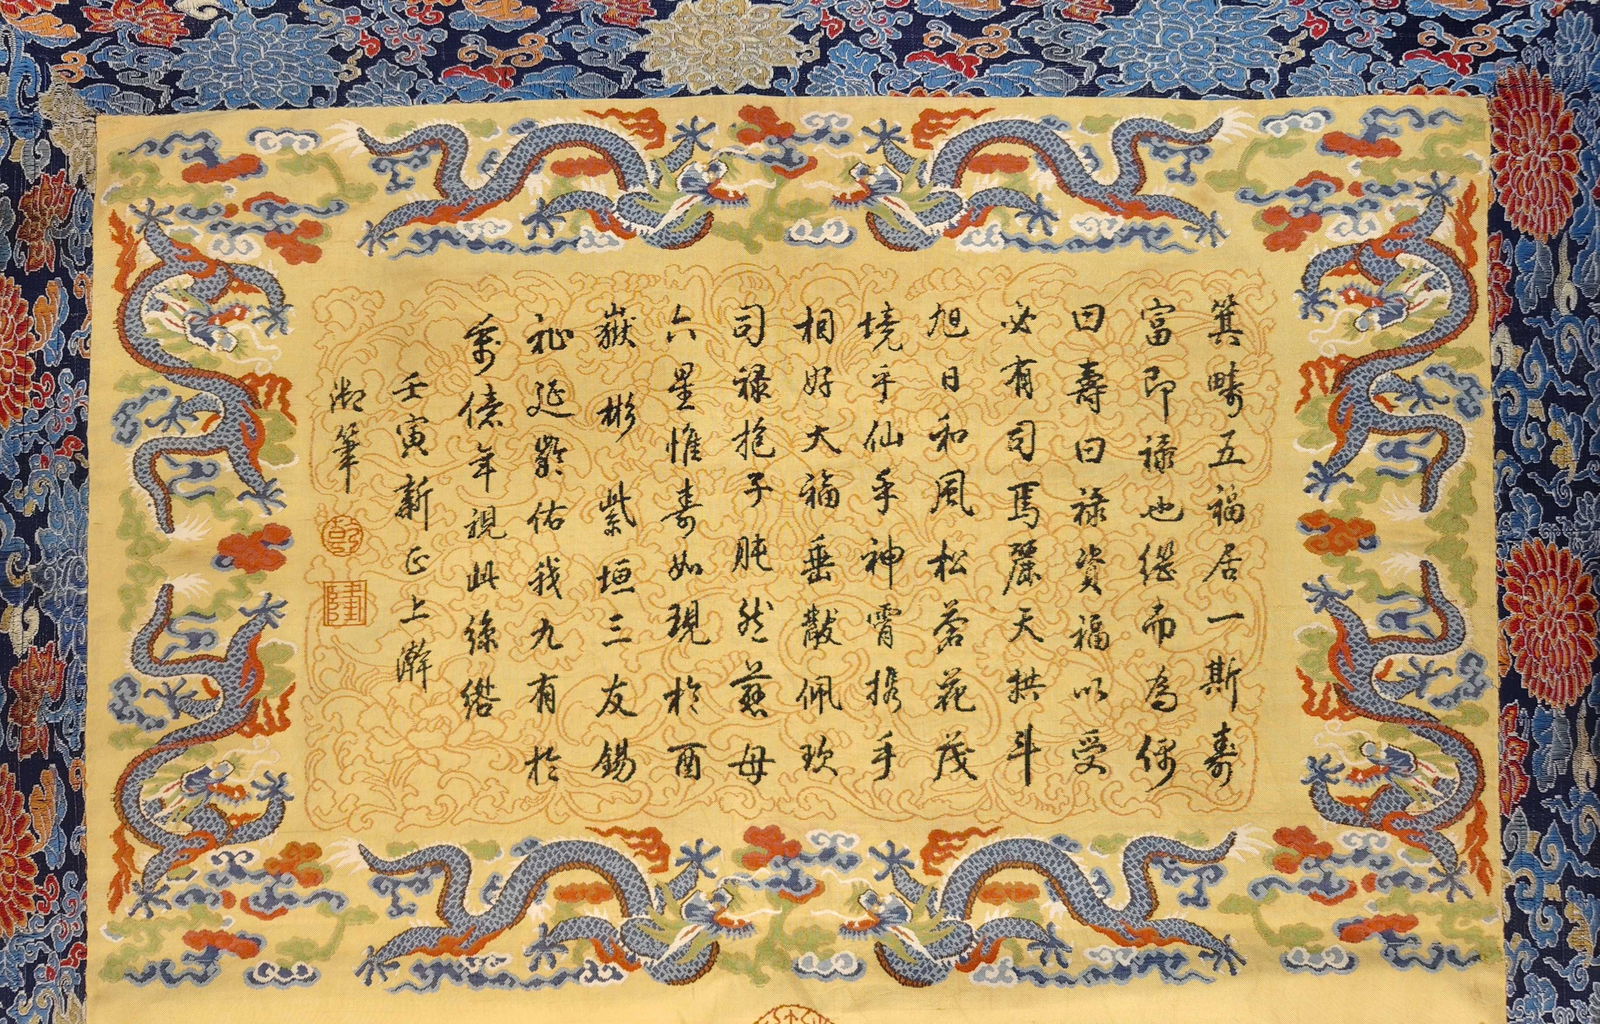 箕疇五福居一斯壽
富即祿也繼而為偶
曰壽曰祿資福以受
必有司焉麗天拱斗
旭日和風松蒼花茂
境乎仙乎神霄攜手
相好大福垂黻佩玖
司祿抱子肫然慈母
六星惟壽如現於酉
嶽彬紫垣三友錫
祉延齡佑我九有於
萬億年視此絲綹
壬寅新正上澣
御筆
乾
隆